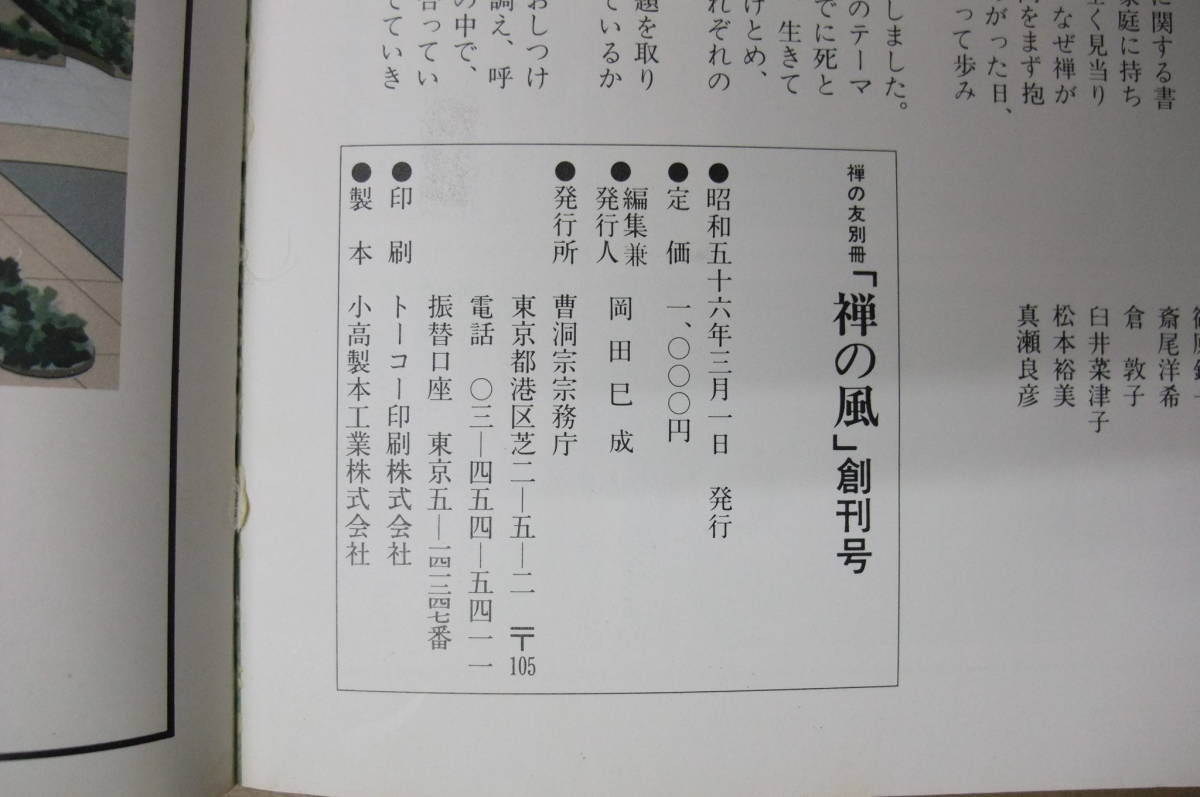 に関する書
家庭に持ち
く見当り
なぜ禅が
をまず抱
がった日、
って歩み
しました。
のテーマ
でに死と
生きて
けとめ、
れぞれの
題を取り
ているか
おしつけ
調え、呼
の中で、
合ってい
てていき
斎尾洋希
倉 敦子
臼井菜津子
松本裕美
真瀬良彦
禅の友別冊「禅の風」創刊号
●昭和五十六年三月一日 発行
●定 価 一、〇〇〇円
●編集兼
発行人 岡田巳成
●発行所 曹洞宗宗務庁
東京都港区芝二―五―二 〒105
電話 〇三―四五四―五四一一
振替口座 東京五―一四三四七番
●印 刷 トーコー印刷株式会社
●製 本 小高製本工業株式会社